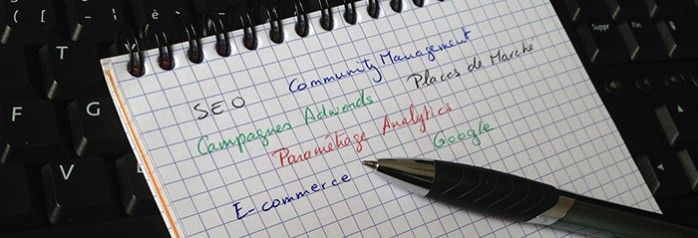 Community Management
SEO
Places de Marché
Campagnes Adwords
Paramétrage Analytics
Google
E-commerce
( [
è
T
F
G
V
Suppr
Fin